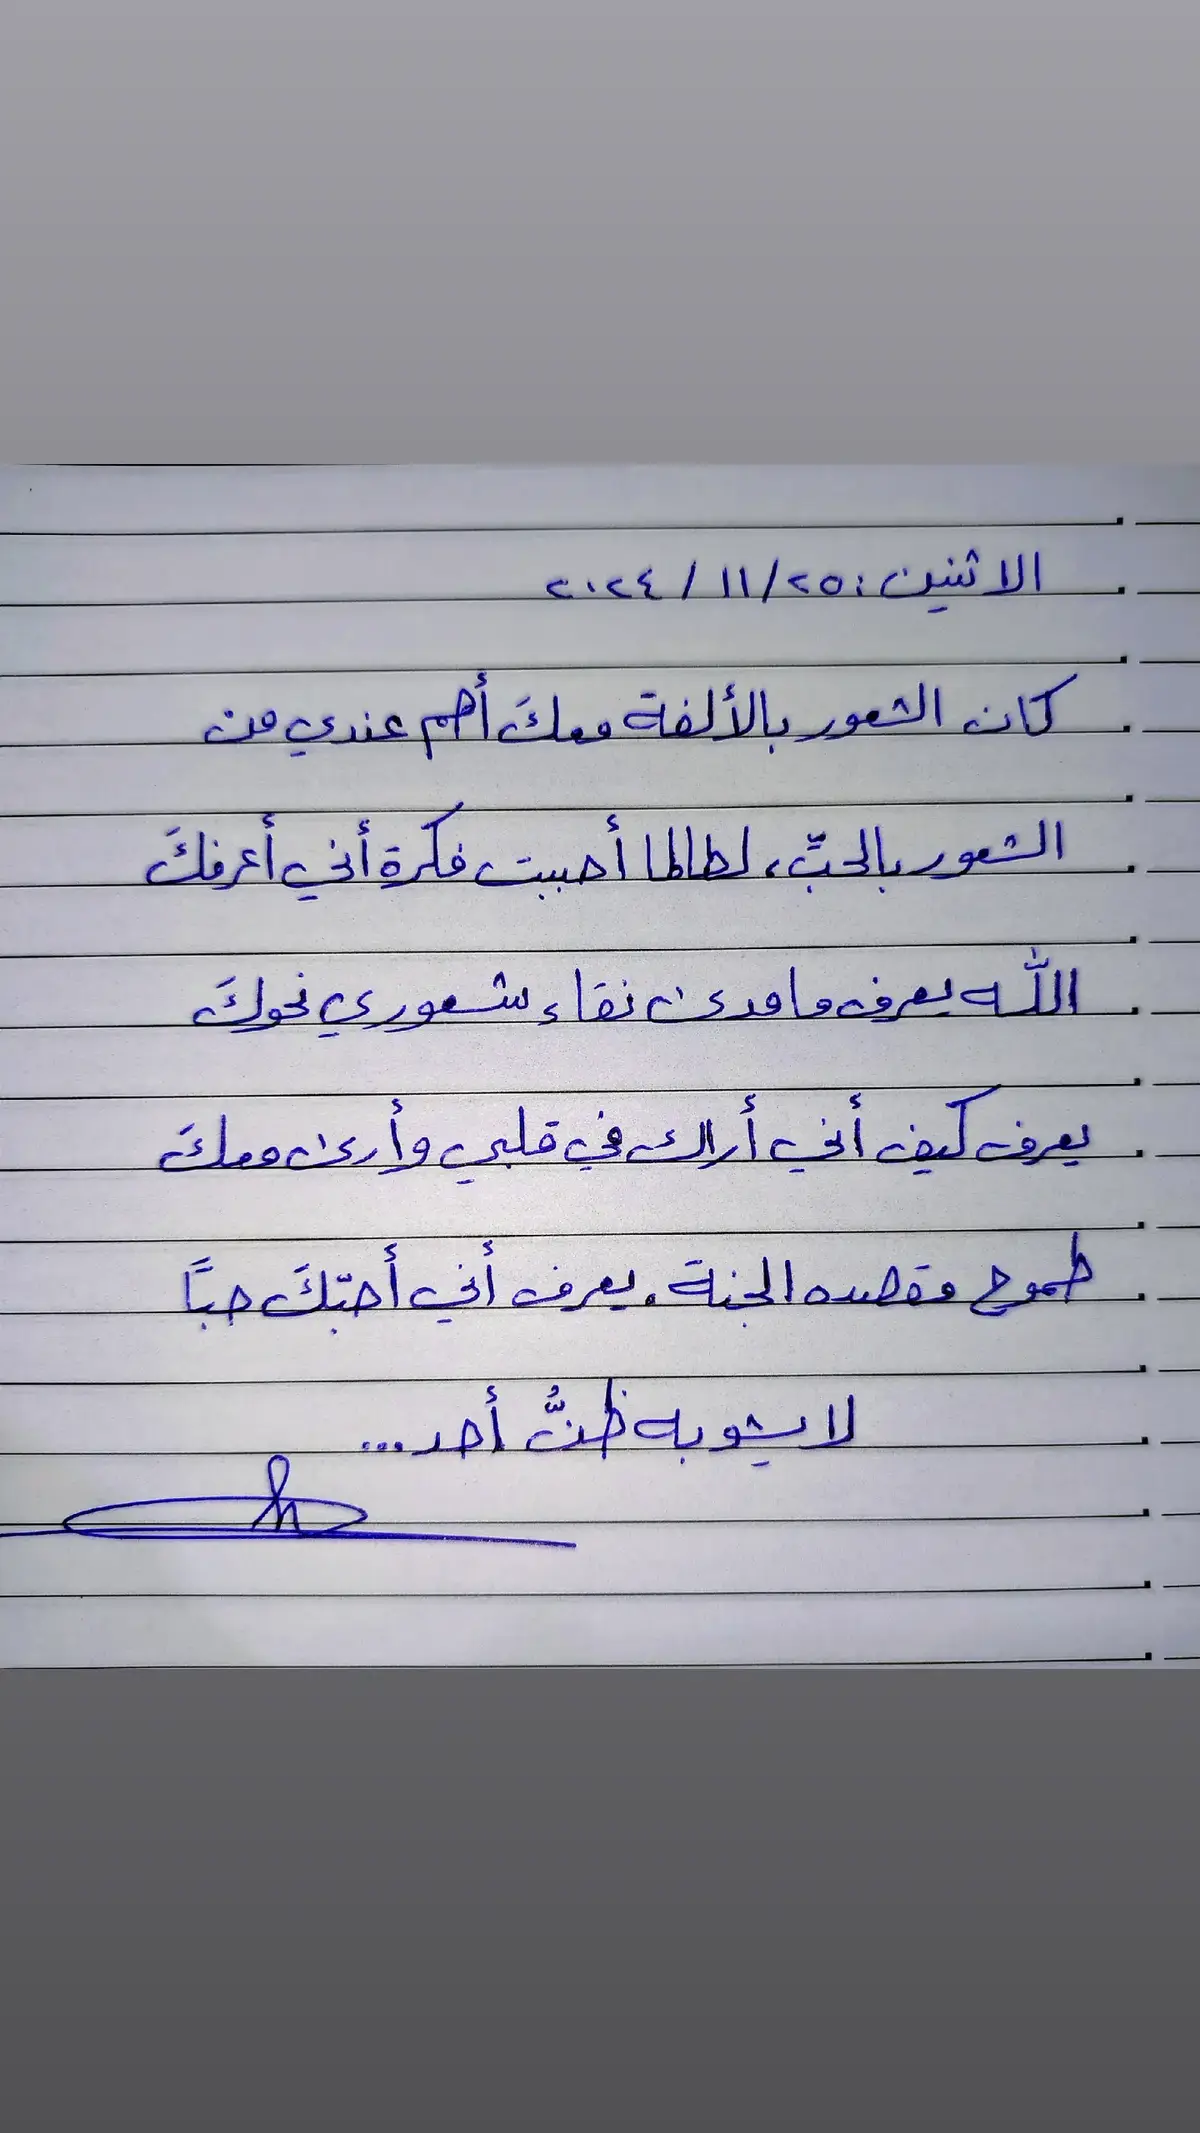 الاثنين: ٢٥/ ١١ / ٢٠٢٤
كان الشعور بالألفة معكَ أهم عندي من
الشعور بالحبِّ، لطالما أحببت فكرة أني أعرفكَ
اللّٰه يعرف ما مدىٰ نقاء شعوري نحوكَ
يعرف كيف أني أراك في قلبي وأرىٰ معكَ
طموح مقصده الجنة. يعرف أني أحبّكَ حبًا
لا يشوبه ظنُّ أحد...